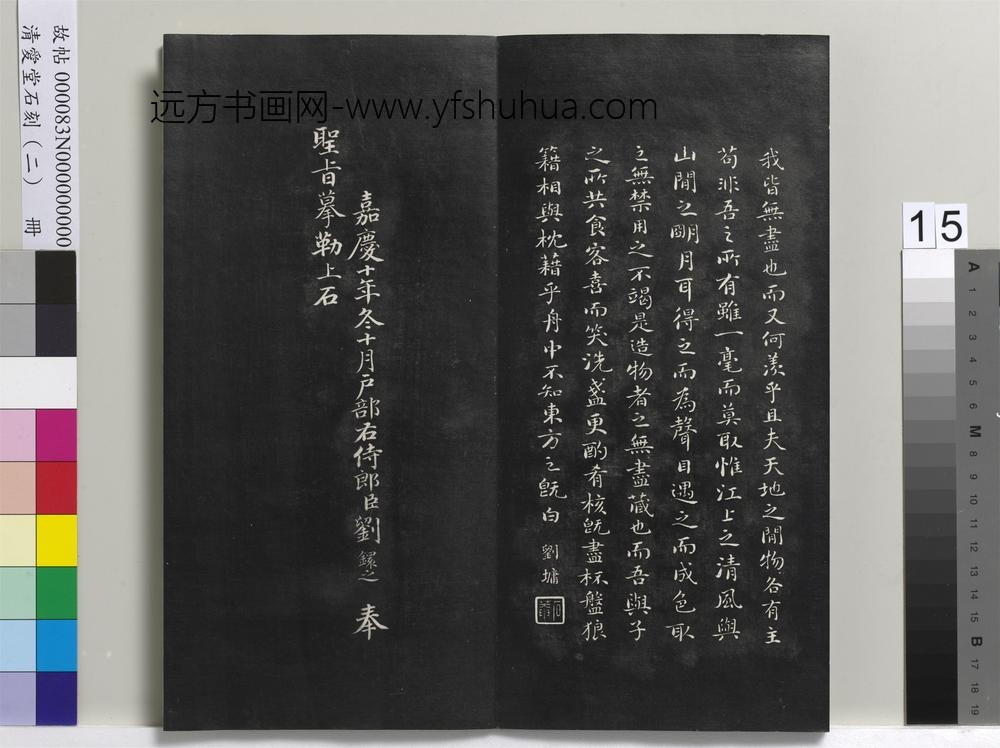 我皆無盡也而又何羨乎且夫天地之閒物各有主
苟非吾之所有雖一毫而莫取惟江上之清風與
山閒之明月耳得之而為聲目遇之而成色取
之無禁用之不竭是造物者之無盡蔵也而吾與子
之所共食客喜而笑洗盞更酌肴核既盡杯盤狼
籍相與枕藉乎舟中不知東方之既白 劉墉
石菴
嘉慶十年冬十月戶部右侍郎臣劉鐶之 奉
聖旨摹勒上石
远方书画网-www.yfshuhua.com
故帖 000083N000000000
清愛堂石刻（二） 冊
15
A 1 2 3 4 5 6 M 8 9 10 11 12 13 14 15 B 17 18 19